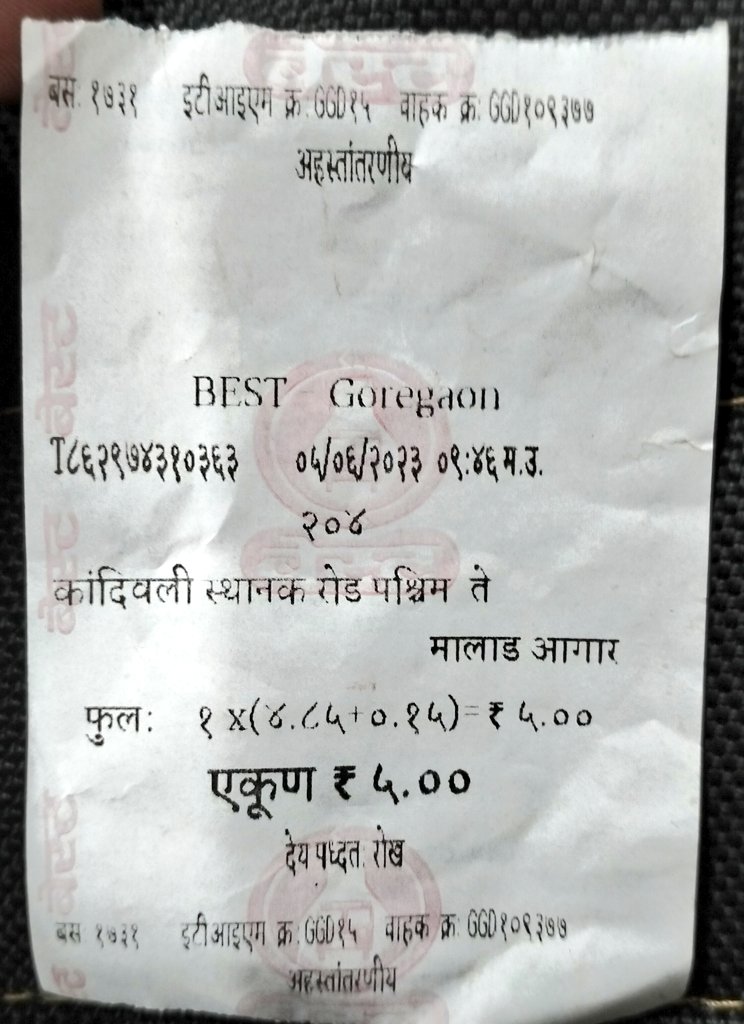 बस: १७३१ इटीआइएम क्र: GGD१५ वाहक क्र: GGD१०९३७७
अहस्तांतरणीय
BEST - Goregaon
T८६२९७४३१०३६३ ०५/०६/२०२३ ०९:४६ म.उ.
२०४
कांदिवली स्थानक रोड पश्चिम ते
मालाड आगार
फुल: १ X(४.८५+०.१५)=₹ ५.००
एकूण ₹ ५.००
देय पध्दत: रोख
बस १७३१ इटीआइएम क्र: GGD१५ वाहक क्र: GGD१०९३७७
अहस्तांतरणीय
बेस्ट
बेस्ट
बेस्ट
बेस्ट
बेस्ट